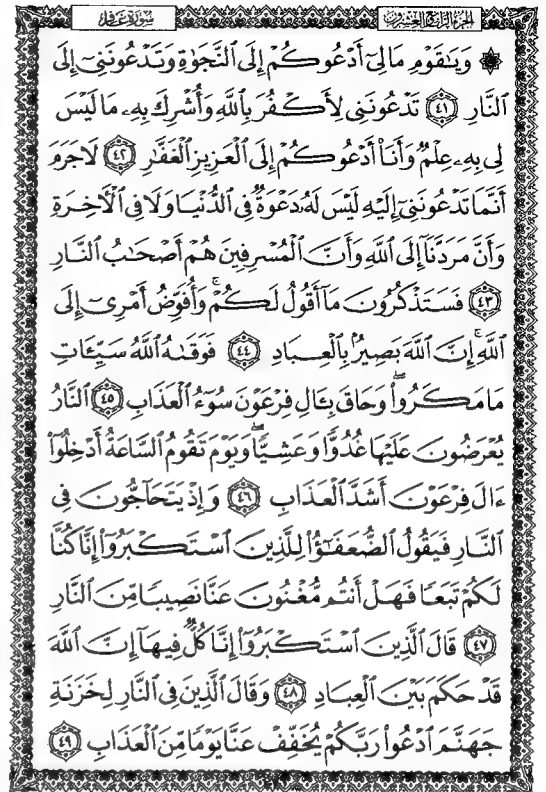 سُورَةُ غَافِرٍ الجزء الرابع والعشرون
۞ وَيَٰقَوْمِ مَا لِىٓ أَدْعُوكُمْ إِلَى ٱلنَّجَوٰةِ وَتَدْعُونَنِىٓ إِلَى
ٱلنَّارِ ٤١ تَدْعُونَنِى لِأَكْفُرَ بِٱللَّهِ وَأُشْرِكَ بِهِۦ مَا لَيْسَ
لِى بِهِۦ عِلْمٌ وَأَنَا۠ أَدْعُوكُمْ إِلَى ٱلْعَزِيزِ ٱلْغَفَّٰرِ ٤٢ لَا جَرَمَ
أَنَّمَا تَدْعُونَنِىٓ إِلَيْهِ لَيْسَ لَهُۥ دَعْوَةٌ فِى ٱلدُّنْيَا وَلَا فِى ٱلْءَاخِرَةِ
وَأَنَّ مَرَدَّنَآ إِلَى ٱللَّهِ وَأَنَّ ٱلْمُسْرِفِينَ هُمْ أَصْحَٰبُ ٱلنَّارِ
٤٣ فَسَتَذْكُرُونَ مَآ أَقُولُ لَكُمْ ۚ وَأُفَوِّضُ أَمْرِىٓ إِلَى
ٱللَّهِ ۚ إِنَّ ٱللَّهَ بَصِيرٌۢ بِٱلْعِبَادِ ٤٤ فَوَقَىٰهُ ٱللَّهُ سَيِّـَٔاتِ
مَا مَكَرُوا۟ ۖ وَحَاقَ بِـَٔالِ فِرْعَوْنَ سُوٓءُ ٱلْعَذَابِ ٤٥ ٱلنَّارُ
يُعْرَضُونَ عَلَيْهَا غُدُوًّا وَعَشِيًّا ۖ وَيَوْمَ تَقُومُ ٱلسَّاعَةُ أَدْخِلُوٓا۟
ءَالَ فِرْعَوْنَ أَشَدَّ ٱلْعَذَابِ ٤٦ وَإِذْ يَتَحَآجُّونَ فِى
ٱلنَّارِ فَيَقُولُ ٱلضُّعَفَٰٓؤُا۟ لِلَّذِينَ ٱسْتَكْبَرُوٓا۟ إِنَّا كُنَّا
لَكُمْ تَبَعًا فَهَلْ أَنتُم مُّغْنُونَ عَنَّا نَصِيبًا مِّنَ ٱلنَّارِ
٤٧ قَالَ ٱلَّذِينَ ٱسْتَكْبَرُوٓا۟ إِنَّا كُلٌّ فِيهَآ إِنَّ ٱللَّهَ
قَدْ حَكَمَ بَيْنَ ٱلْعِبَادِ ٤٨ وَقَالَ ٱلَّذِينَ فِى ٱلنَّارِ لِخَزَنَةِ
جَهَنَّمَ ٱدْعُوا۟ رَبَّكُمْ يُخَفِّفْ عَنَّا يَوْمًا مِّنَ ٱلْعَذَابِ ٤٩